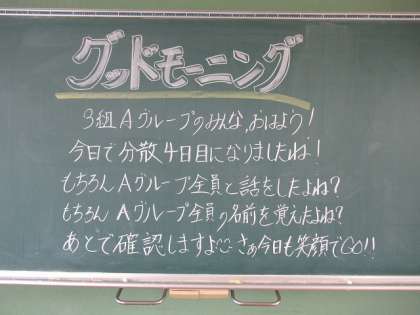 グッドモーニング
3組Aグループのみんな、おはよう!
今日で分散4日目になりましたね!
もちろんAグループ全員と話をしたよね?
もちろんAグループ全員の名前を覚えたよね?
あとで確認しますよ さぁ今日も笑顔でGO!!